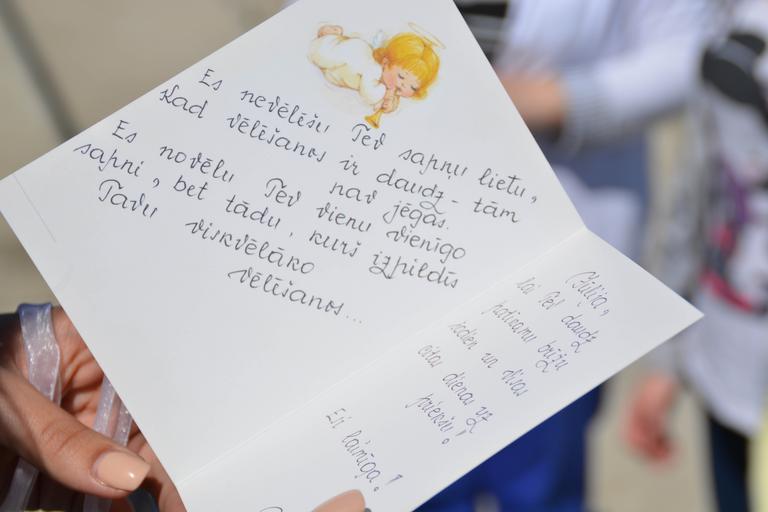 Es nevēlēšu Tev sapņu lietu,
Kad vēlēšanos ir daudz - tām
nav jēgas.
Es novēlu Tev vienu vienīgo
sapni, bet tādu, kurš izpildīs
Tavu viskvēlāko
vēlēšanos...
Jūlija,
lai Tev daudz
patīkamu brīžu
šodien un visas
citas dienas uz
priekšu!
Esi laimīga!